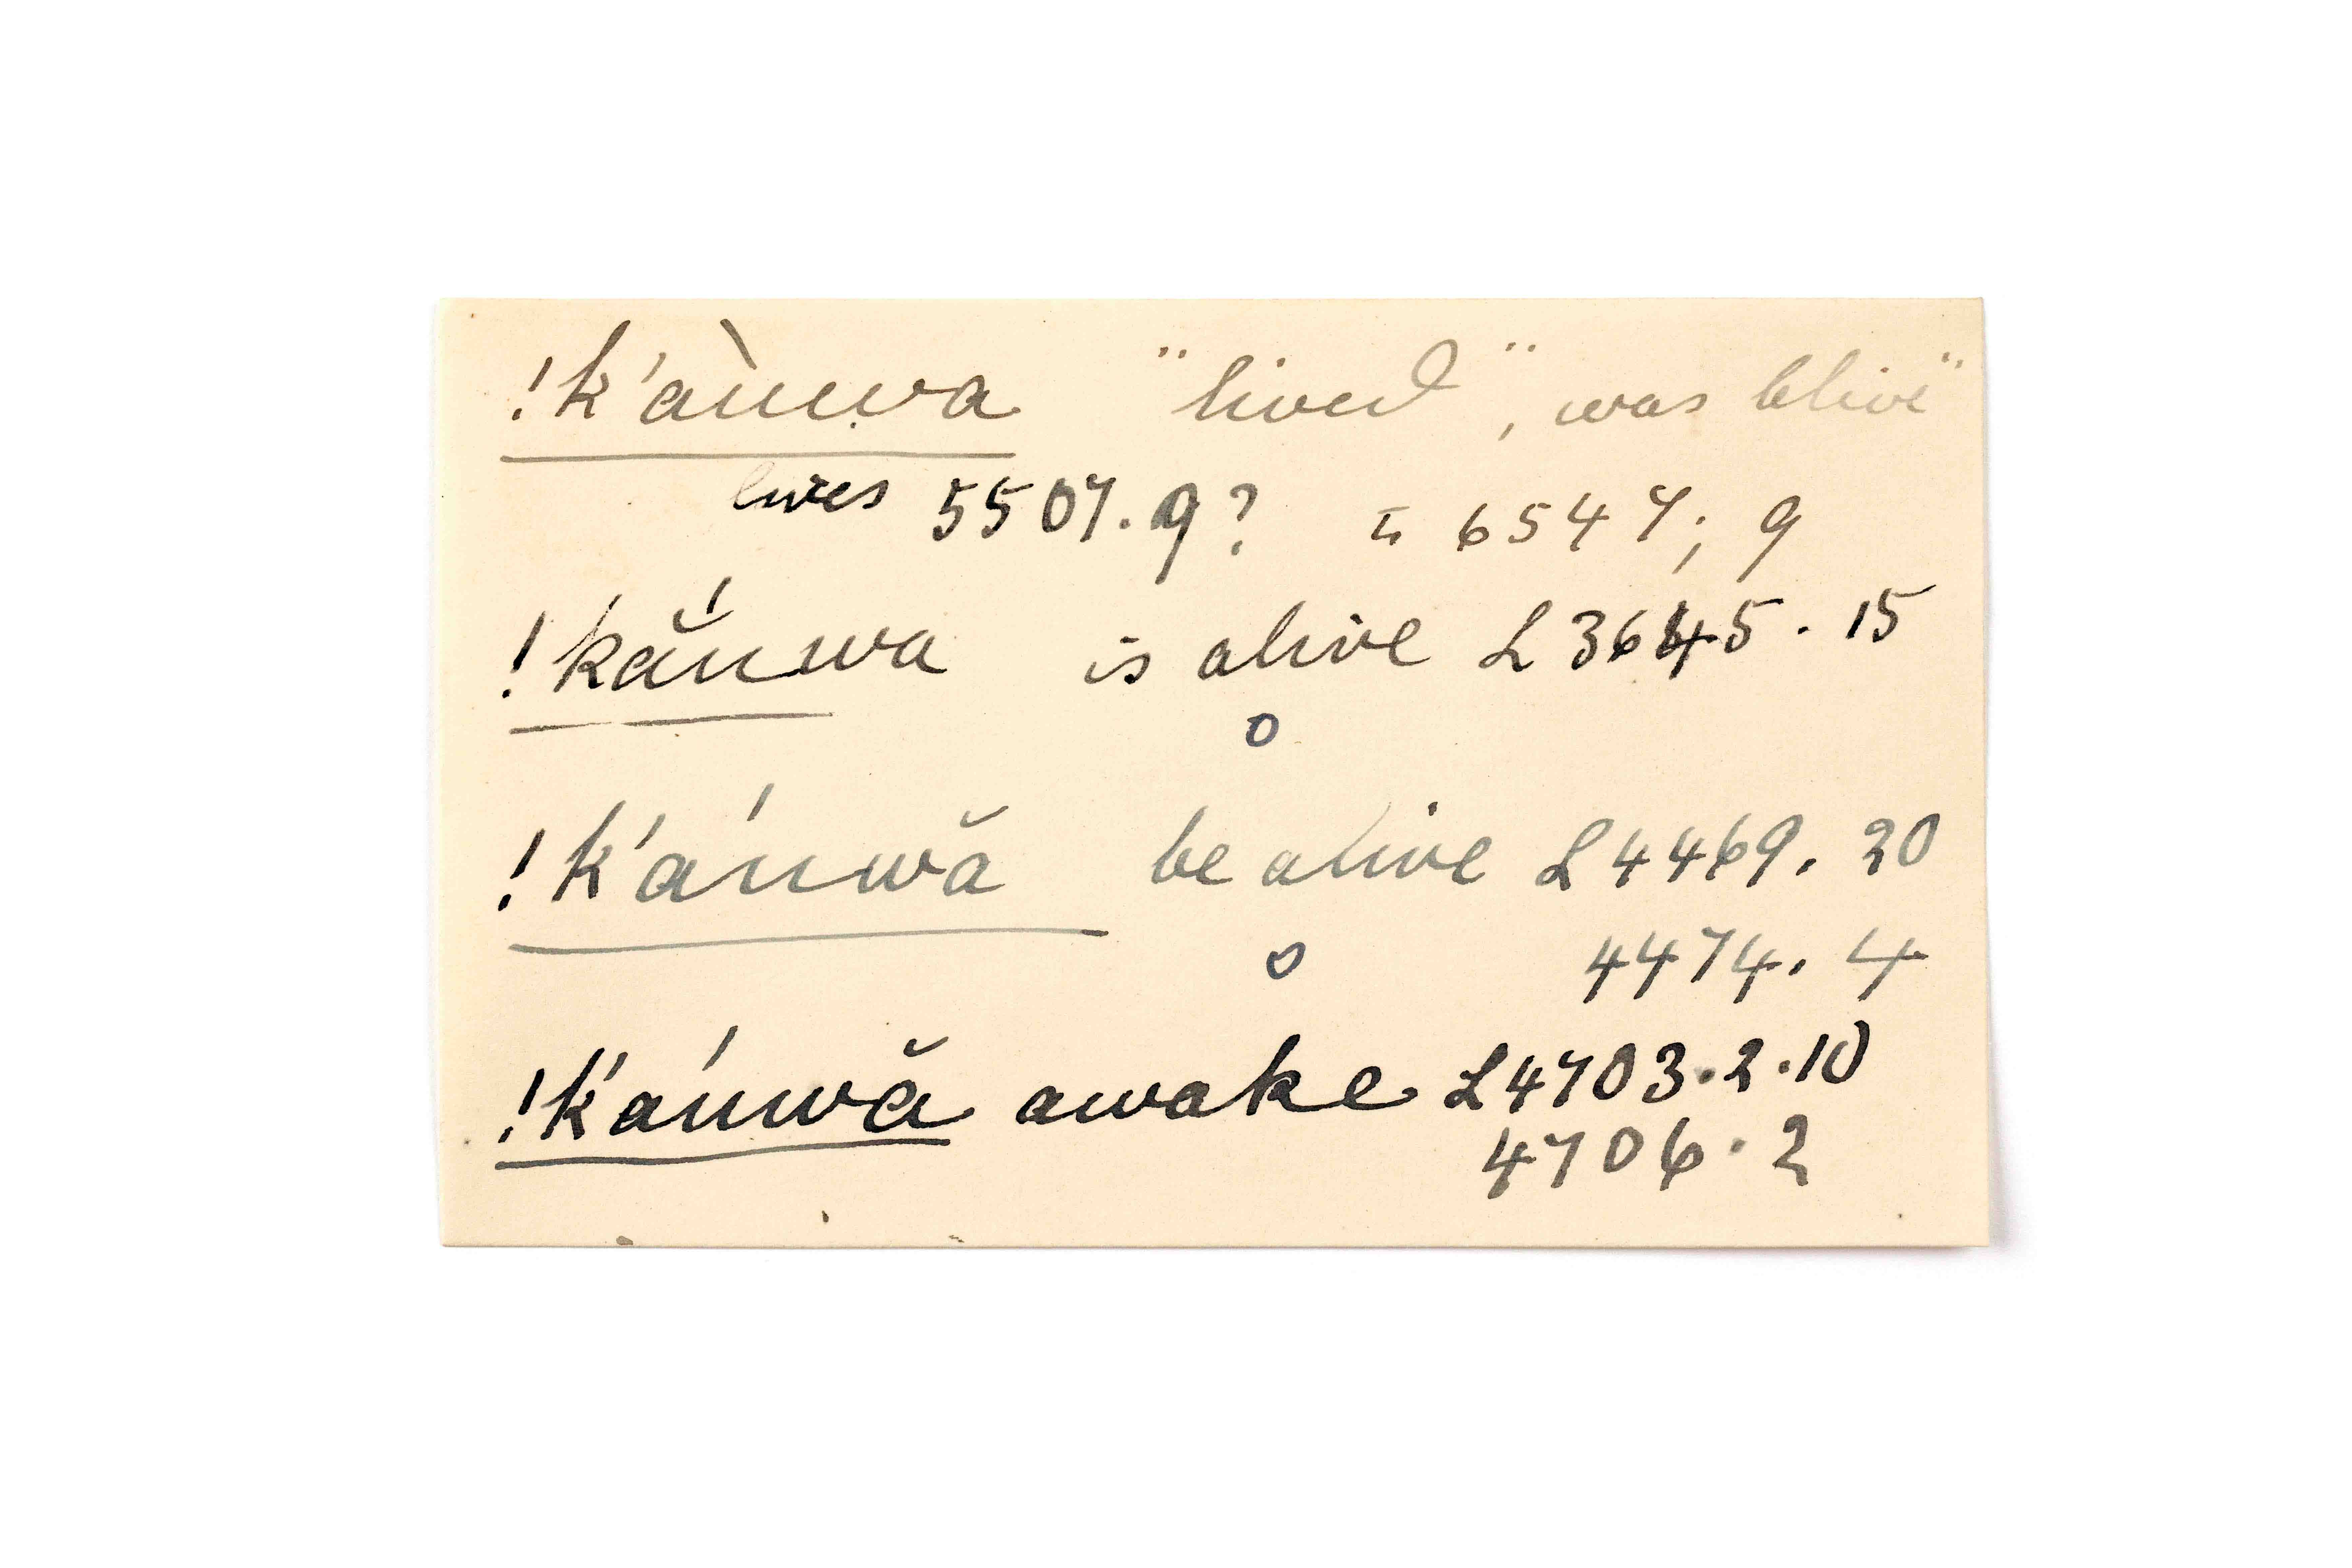 !k'àuwa "lived", was alive"
lives 5507. 9? = 6547; 9
!kắuwa is alive L 3645. 15
o
!k'áuwă be alive L 4469. 20
o 4474. 4
!k'áuwă awake L 4703.2.10
4706. 2